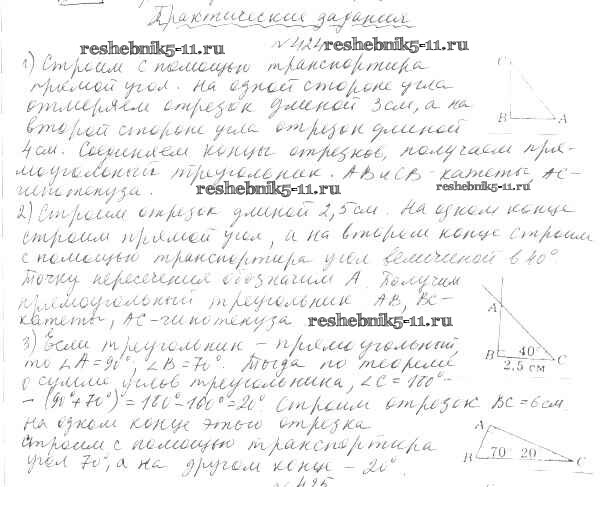 Практические задания
reshebnik5-11.ru №424 reshebnik5-11.ru
1) Строим с помощью транспортира
прямой угол. На одной стороне угла
отмеряем отрезок длиной 3см, а на
второй стороне угла отрезок длиной
4см. Соединяем концы отрезков, получаем пря-
моугольный треугольник. AB и CB - катеты, AC-
гипотенуза. reshebnik5-11.ru reshebnik5-11.ru
C
B A
2) Строим отрезок длиной 2,5см. На одном конце
строим прямой угол, а на втором конце строим
с помощью транспортира угол величиной в 40°.
Точку пересечения обозначим A. Получим
прямоугольный треугольник AB, BC-
катеты, AC-гипотенуза reshebnik5-11.ru
A
B 40° C
2,5 см
3) Если треугольник - прямоугольный,
то ∠A=90°, ∠B=70°. Тогда по теореме
о сумме углов треугольника, ∠C=180°-
-(90°+70°)=180°-160°=20°. Строим отрезок BC=6см.
На одном конце этого отрезка
строим с помощью транспортира
угол 70°, а на другом конце - 20°.
A
B 70° 20 C
№425